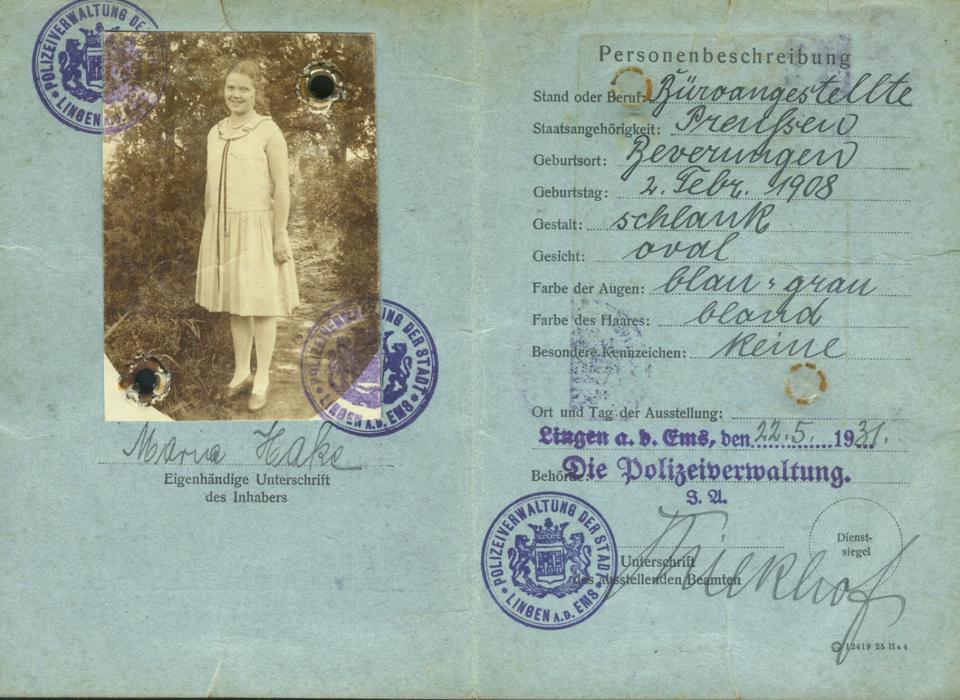 POLIZEIVERWALTUNG DE
LINGEN A.D.
POLIZEIVERWALTUNG DER STADT
LINGEN A.D. EMS
Maria Hake
Eigenhändige Unterschrift
des Inhabers
Personenbeschreibung
Stand oder Beruf: Büroangestellte
Staatsangehörigkeit: Preußen
Geburtsort: Beverungen
Geburtstag: 2. Febr. 1908
Gestalt: schlank
Gesicht: oval
Farbe der Augen: blau-grau
Farbe des Haares: blond
Besondere Kennzeichen: keine
Ort und Tag der Ausstellung:
Lingen a. d. Ems, den 22.5. 1931.
Behörde: Die Polizeiverwaltung.
I. A.
POLIZEIVERWALTUNG DER STADT
LINGEN A.D. EMS
Dienst-
siegel
Unterschrift
des ausstellenden Beamten
12419 25 II a 4